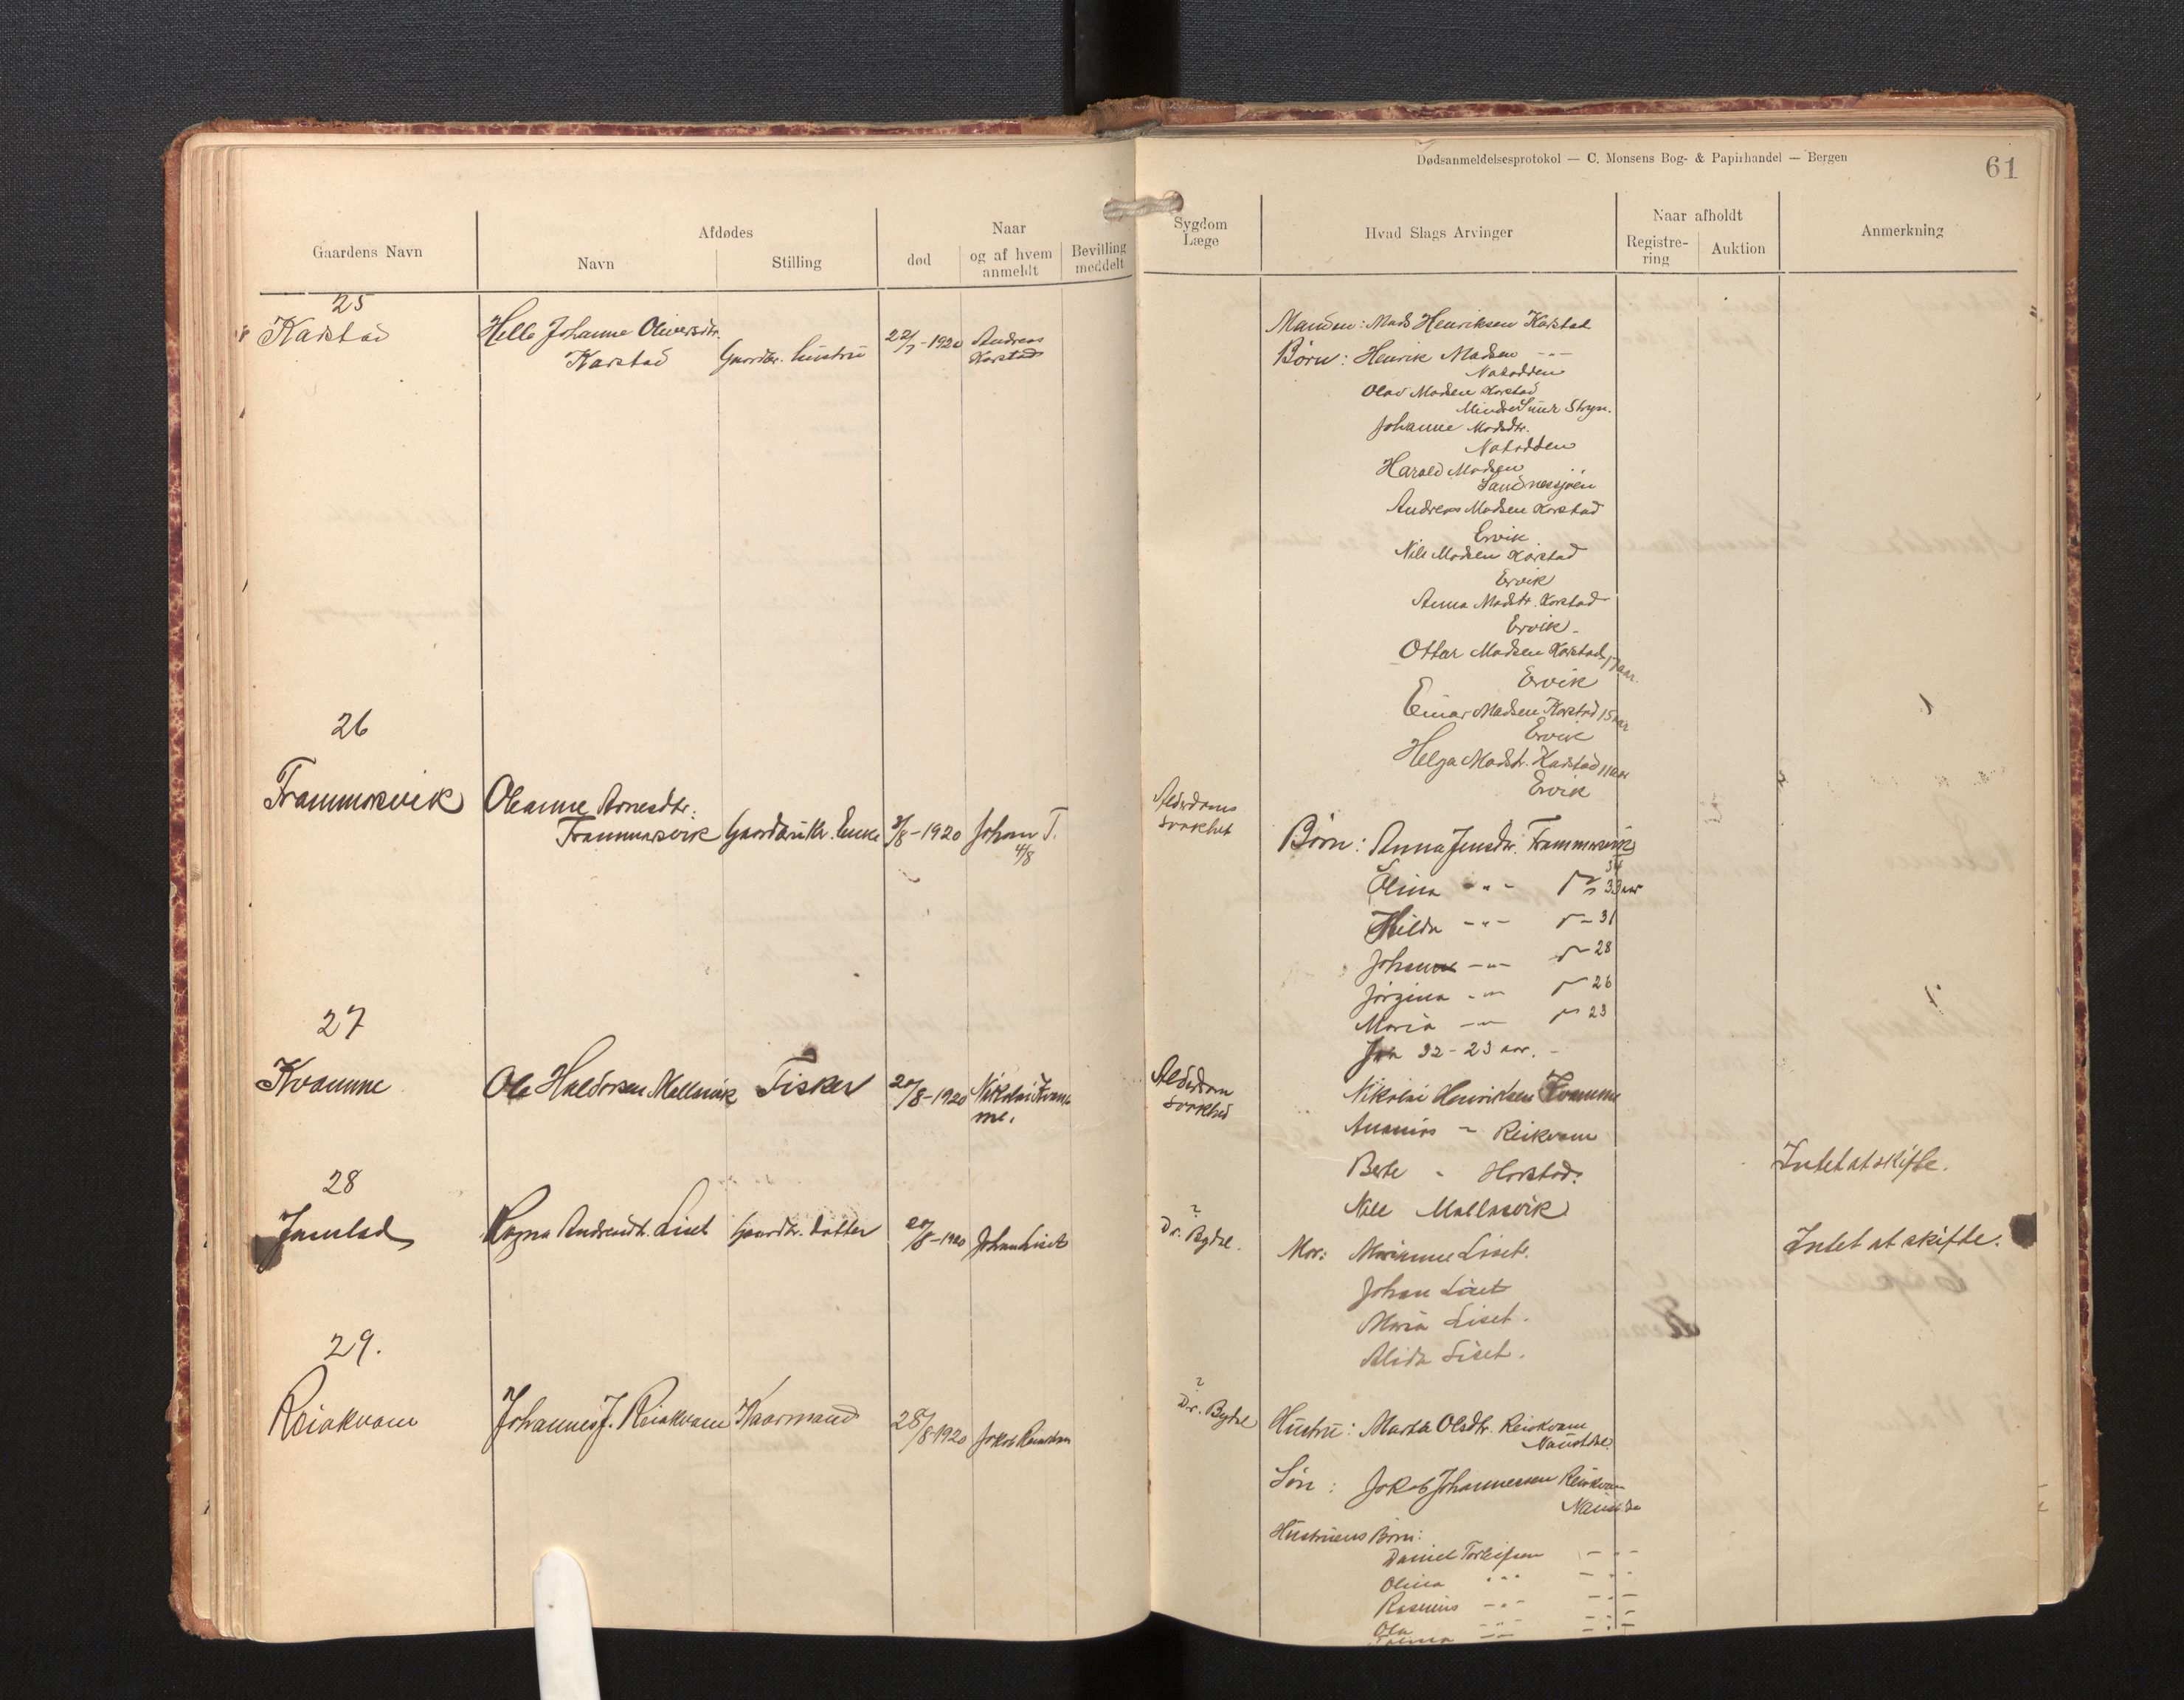 Dødsanmeldelsesprotokol — C. Monsens Bog- & Papirhandel — Bergen
61
Gaardens Navn
Afdødes
Navn
Stilling
Naar
død
og af hvem anmeldt
Bevilling meddelt
Sygdom
Læge
Hvad Slags Arvinger
Naar afholdt
Registre-
ring
Auktion
Anmerkning
25
Karstad
Helle Johanne Oliversdtr.
Karstad
Gaardbr. hustru
22/7-1920
Andreas
Karstad
Manden: Mads Henriksen Karstad
Børn: Henrik Madsen -"-
Notodden
Olav Madsen Karstad
Mindre Sunde Stryn.
Johanne Madsdtr.
Notodden
Harald Madsen
Sandnessjøen
Andreas Madsen Karstad
Ervik
Nils Madsen Karstad
Ervik
Anna Madsdtr. Karstad
Ervik.
Ottar Madsen Karstad 17 aar.
Ervik
Einar Madsen Karstad 15 aar
Ervik
Helga Madsdtr. Karstad 11 aar
Ervik
26
Frammarsvik
Oleanne Arnesdtr.
Frammarsvik
Gaardbruker. Enke
3/8-1920
Johan F.
4/8
Alderdoms
svakhet
Børn: Anna Jensdtr. Frammarsvik
34
Olina -"- 33 aar
Hilda -"- 31
Johanne -"- 28
Jørgina -"- 26
Maria -"- 23
27
Kvamme
Ole Haldorsen Mallasvik
Fisker
20/8-1920
Nikolai Kvam
me.
Alderdom
svakhed
Nikolai Henriksen Kvamme
Ananias " Reikvam
Berte " Horstad.
Nils Mallasvik
Intet at skifte.
28
Ragna Andreasdt. Liset
Gaardbr. datter
20/8-1920
Johan Liset
?
Dr. Bydal.
Mor: Marianne Liset.
Johan Liset
Maria Liset.
Alida Liset.
Intet at skifte.
29.
Reiakvam
Johannes J. Reiakvam
Kaarmand
28/8-1920
Jakob Reiakvam
?
Dr. Bydal
Hustru: Marta Olsdtr. Reiakvam
Naustdal
Søn: Jakob Johannessen Reiakvam
Naustda
Hustruens Børn:
Daniel Torleifsen -"-
Olina -"- -"-
Rasmus -"- -"-
Ola -"- -"-